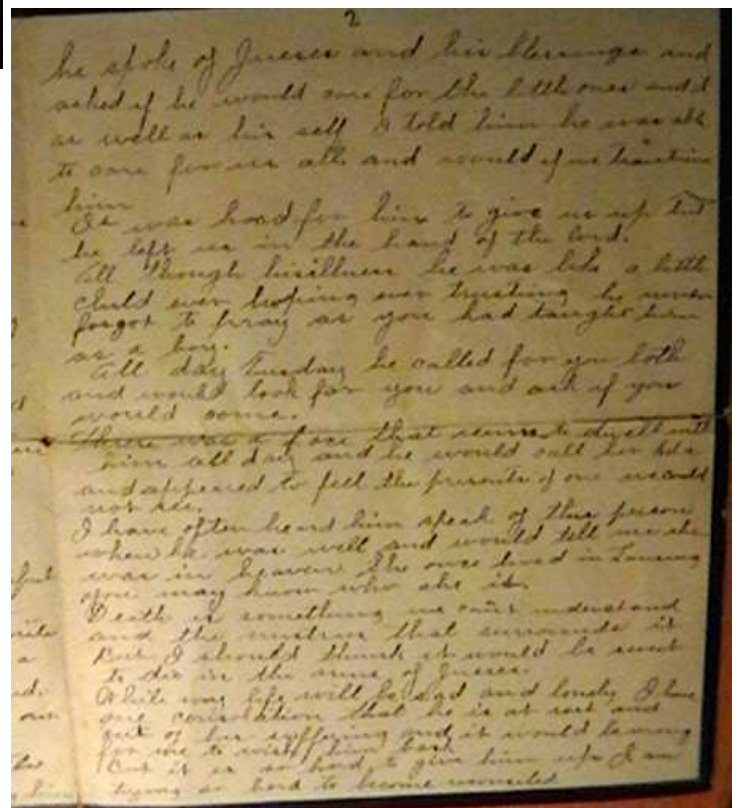 2
he spoke of Jueses and his blessings and
asked if he would care for the little ones and I
as well as his self I told him he was able
to care for us all and would if we trust in
him
It was hard for him to give us up but
he left us in the hand of the lord.
All though his illness he was like a little
child ever hoping ever trusting he never
forgot to pray as you had taught him
as a boy.
All day Tuesday he called for you both
and would look for you and ask if you
would come.
There was a face that seems to dwell with
him all day and he would call her
and appeared to fell the presents of one we could
not see.
I have often heard him speak of this person
when he was well and would tell me she
was in heaven She once lived in Lansing
you may know who she is.
Death is something we can't understand
and the that surrounds it
But I should think it would be sweet
to die in the arms of Jueses.
While my life will be sad and lonely I have
one consolation that he is at rest and
out of his suffering and it would be wrong
for me to wish him back
But it is so hard to give him up I am
trying so hard to become